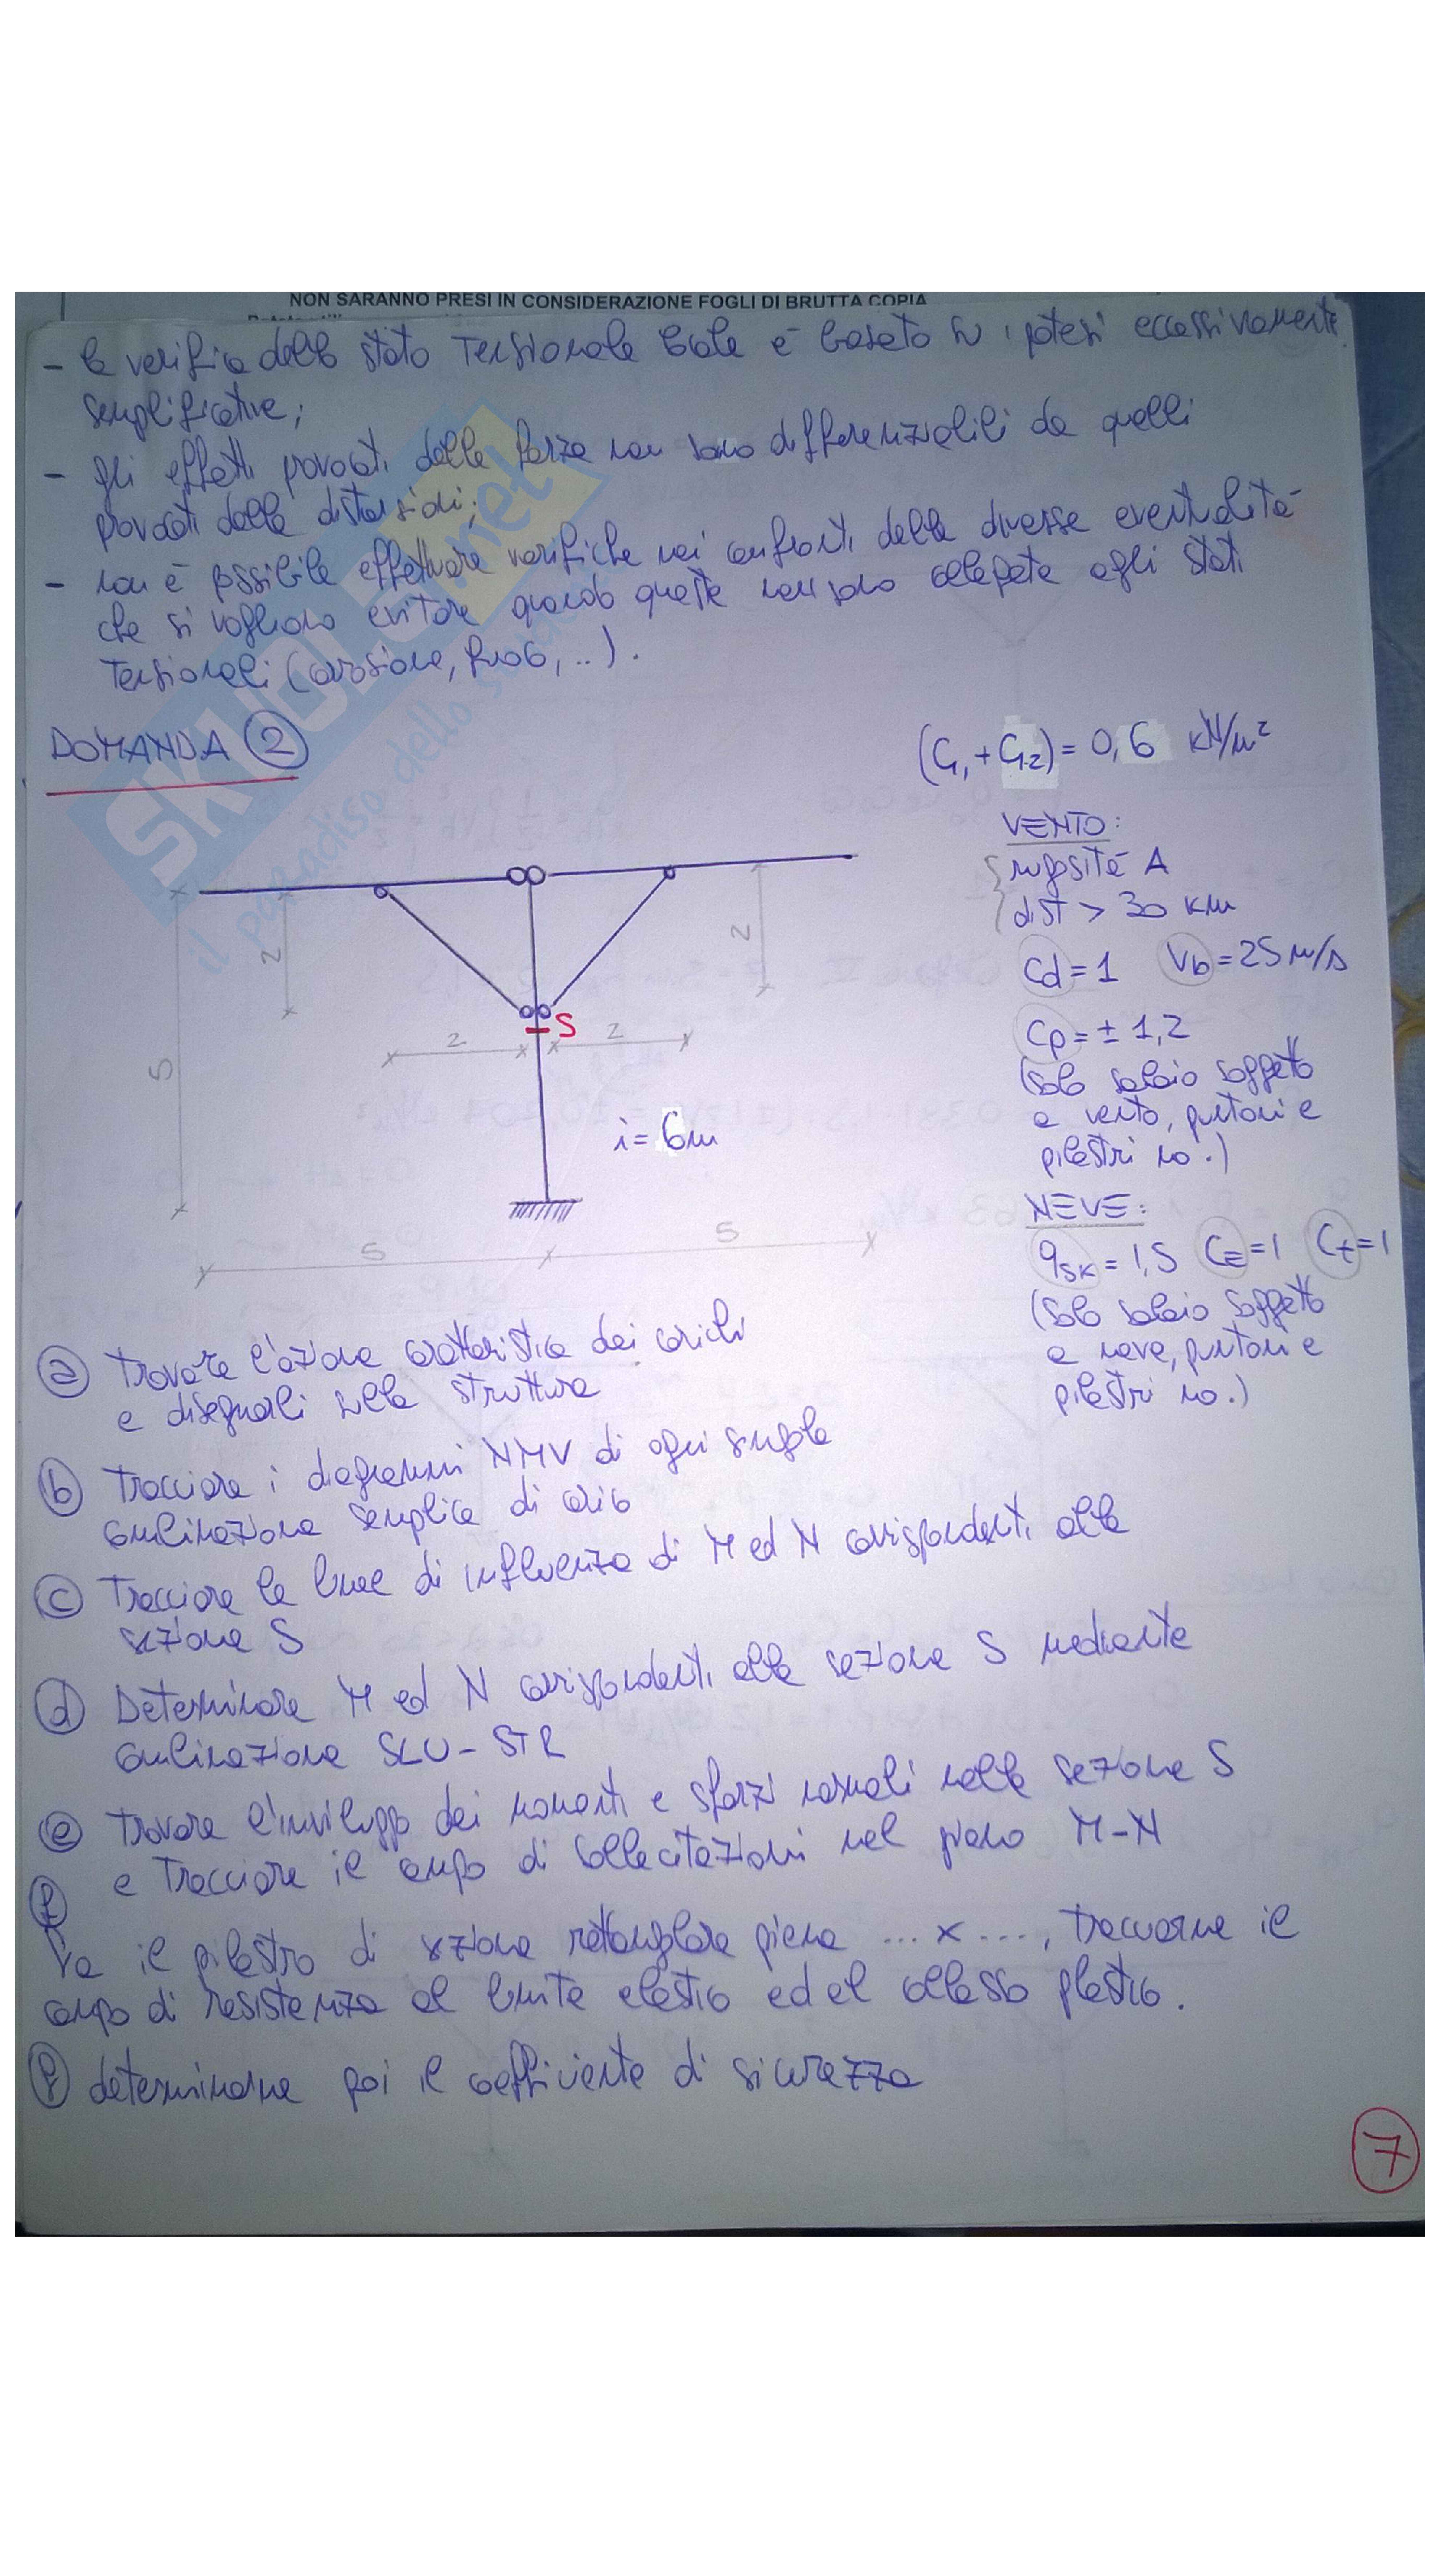 NON SARANNO PRESI IN CONSIDERAZIONE FOGLI DI BRUTTA COPIA
- la verifica dello stato tensionale locale è basata su ipotesi eccessivamente
semplificative;
- gli effetti provocati dalle forze non sono differenziabili da quelli
provocati dalle distorsioni;
- non è possibile effettuare verifiche nei confronti delle diverse eventualità
che si vogliono evitare quando queste non sono collegate agli stati
tensionali (corrosione, fuoco, ..).
SKUOLA.net
il paradiso dello studente
DOMANDA 2
(G1+G2) = 0,6 kN/m²
VENTO:
rugosità A
dist > 30 km
Cd = 1 Vb = 25 m/s
Cp = ± 1,2
(solo solaio soggetto
a vento, puntoni e
pilastri no.)
NEVE:
qsk = 1,5 CE = 1 Ct = 1
(solo solaio soggetto
a neve, puntoni e
pilastri no.)
2
2
S
2
2
5
i = 6m
5
5
a trovare l'azione caratteristica dei carichi
e disegnarli sulla struttura
b tracciare i diagrammi NMV di ogni singola
combinazione semplice di carico
c tracciare le linee di influenza di M ed N corrispondenti alla
sezione S
d Determinare M ed N corrispondenti alla sezione S mediante
combinazione SLU-STR
e trovare l'inviluppo dei momenti e sforzi normali nella sezione S
e tracciare il campo di sollecitazioni nel piano M-N
f
il pilastro di sezione rettangolare piena ... x ..., tracciarne il
campo di resistenza al limite elastico ed al collasso plastico.
determinarne poi il coefficiente di sicurezza
7